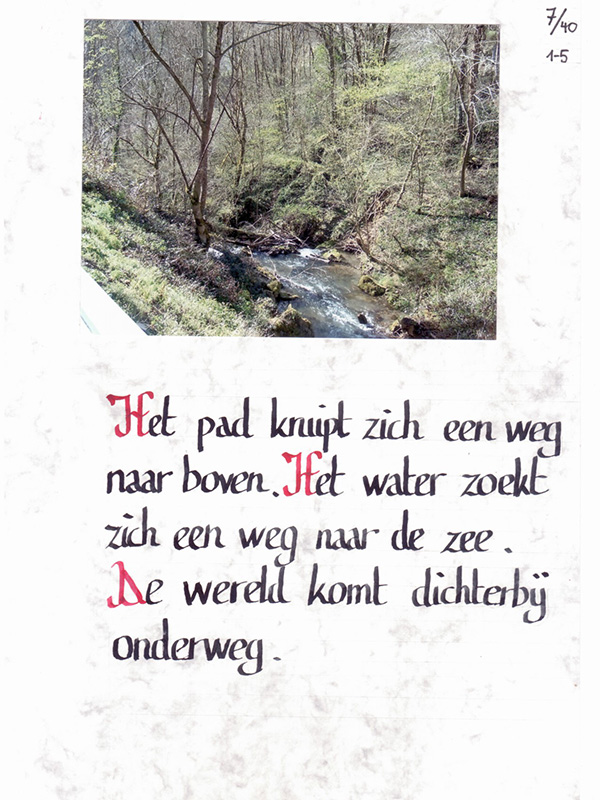 7/40
1-5
Het pad kruipt zich een weg
naar boven. Het water zoekt
zich een weg naar de zee.
De wereld komt dichterbij
onderweg.